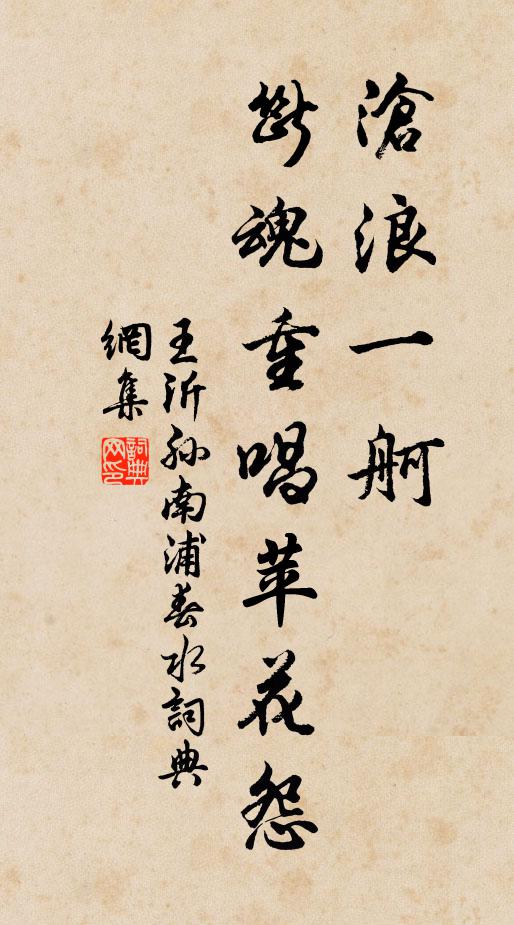 滄浪一舸
斷魂重唱苹花怨
王沂孙南浦春水詞典
網集
詞典网印